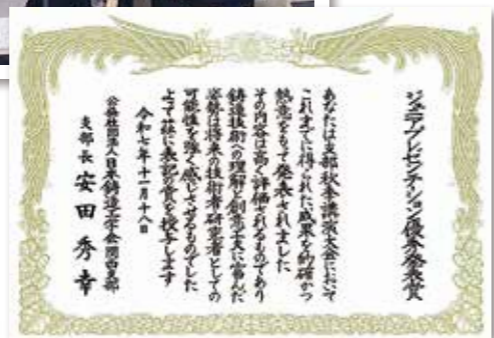 ジュニアプレゼンテーション優秀発表賞
あなたは支部秋季講演大会において
これまでに得られた成果を的確かつ
熱意をもって発表されました
その内容は高く評価されるものであり
鋳造技術への理解と創意工夫に富んだ
姿勢は将来の技術者研究者としての
可能性を強く感じさせるものでした
よって茲に表記の賞を授与します
令和七年十一月十八日
公益社団法人日本鋳造工学会関西支部
支部長 安田秀幸